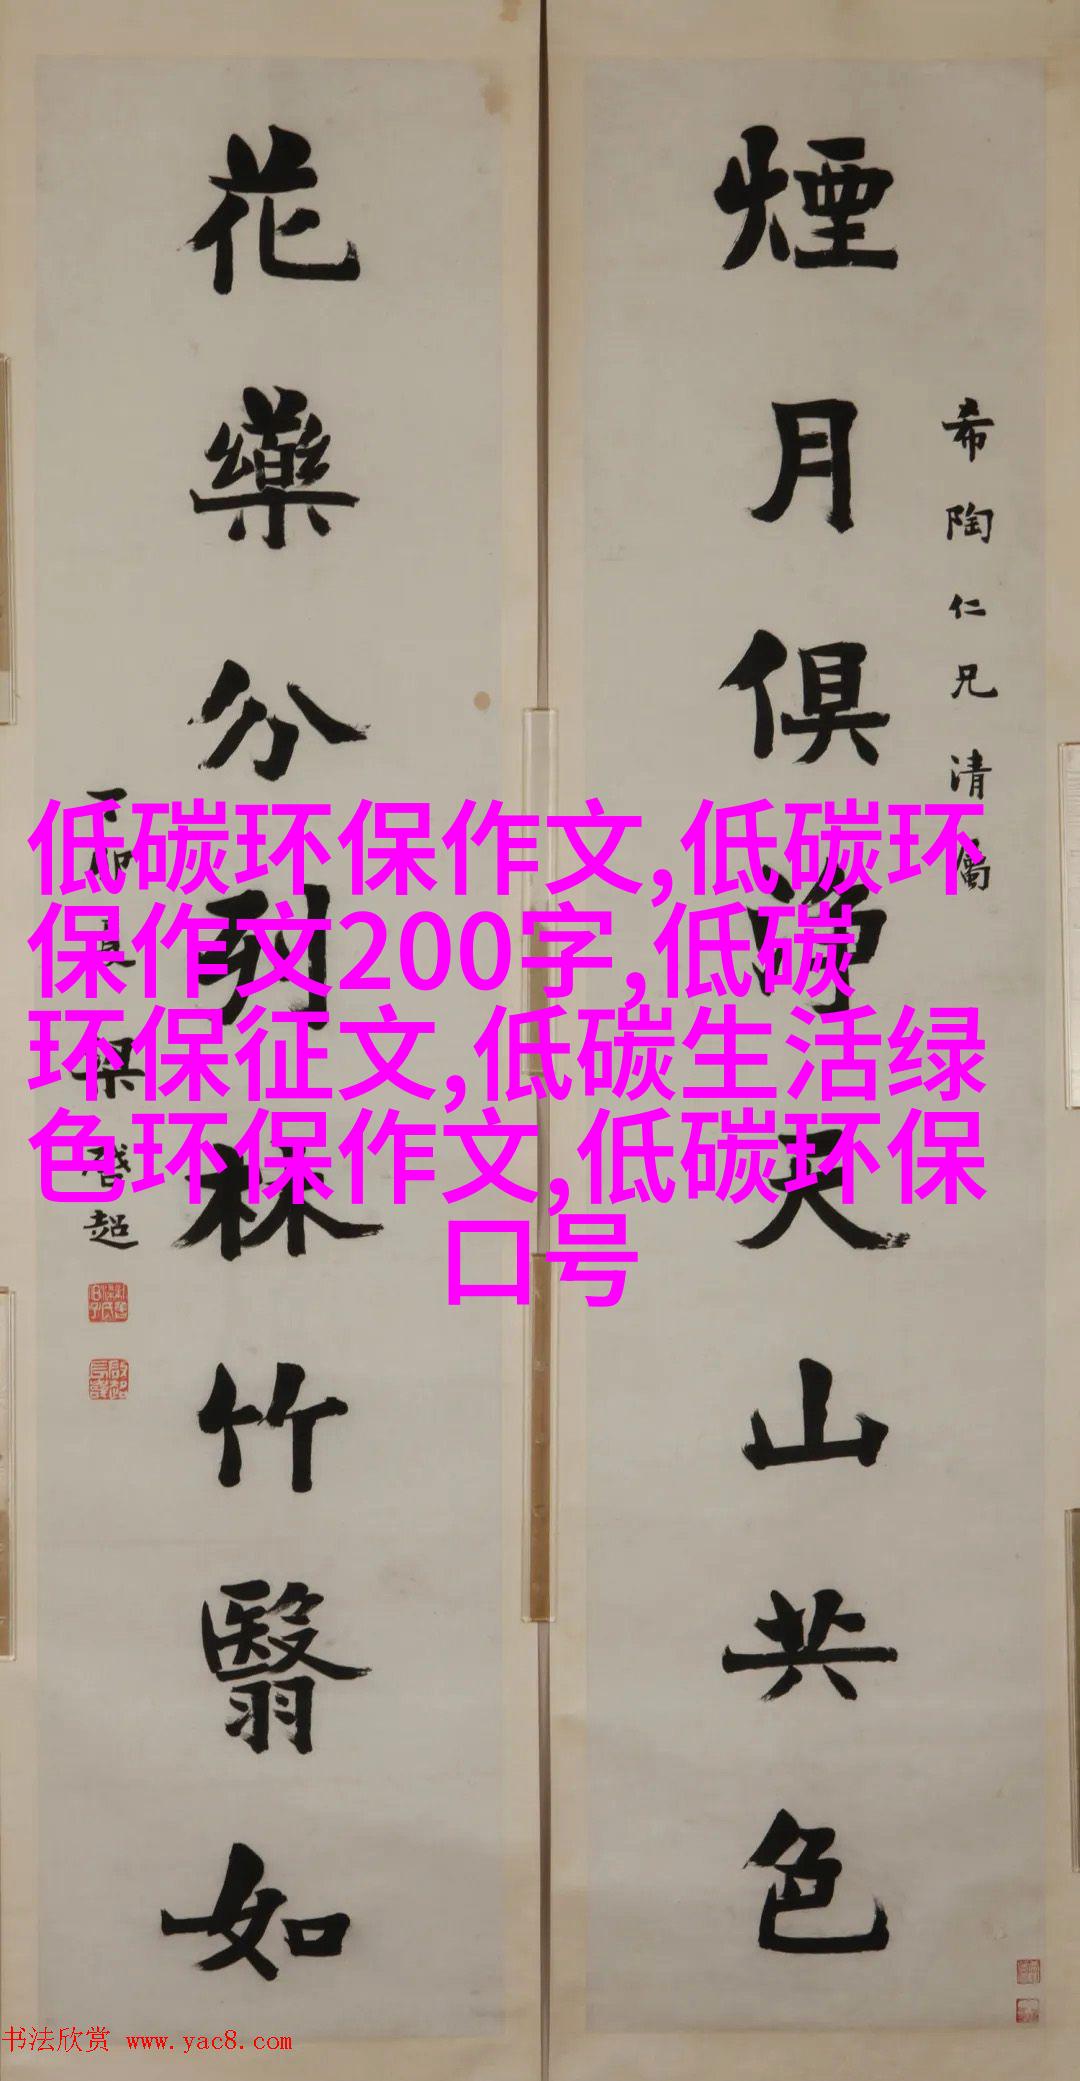 希陶仁兄清屬
煙月俱淨天山共色
花藥分列林竹翳如
丁卯夏梁啓超
低碳环保作文,低碳环
保作文200字,低碳
环保征文,低碳生活绿
色环保作文,低碳环保
口号
书法欣赏 www.yac8.com